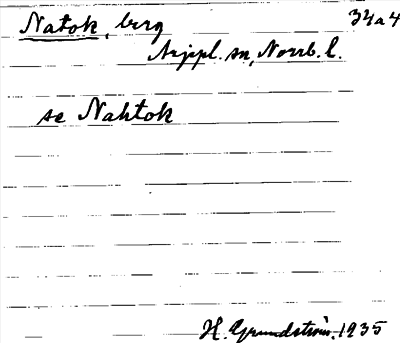 Natok, berg 34a4
Arjpl. sn, Norrb. l.
se Nahtok
H. Grundström, 1935